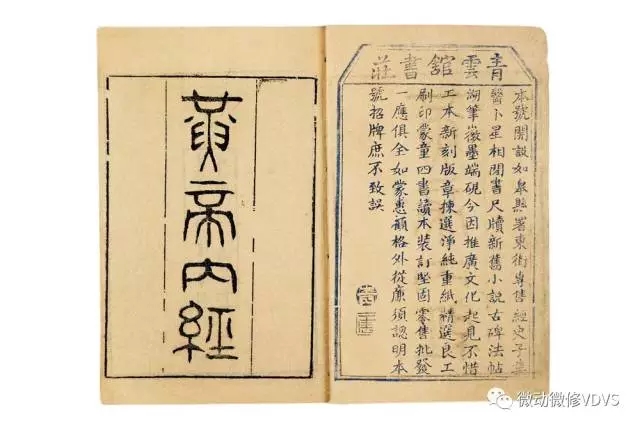 青雲舘書莊
本號開設如臯縣署東街專售經史子集
醫卜星相閒書尺牘新舊小說古碑法帖
湖筆徽墨端硯今因推廣文化起見不惜
工本新刻版章揀選淨純重紙精選良工
刷印蒙童四書讀本裝訂堅固零售批發
一應俱全如蒙惠顧格外從廉須認明本
號招牌庶不致誤
黃帝內經
微动微修VDVS